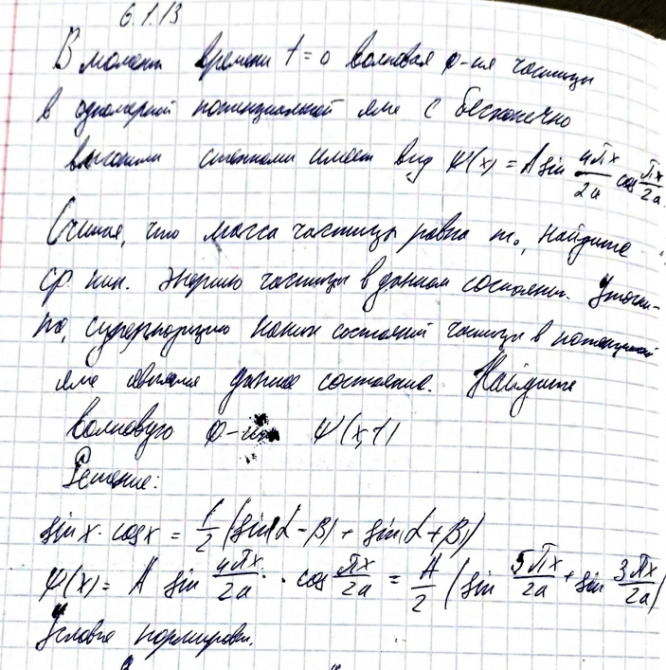 6.1.13
В момент времени t=0 волновая ф-ия частицы
в одномерной потенциальной яме с бесконечно
высокими стенками имеет вид Ψ(x) = A sin 4πx/2a cos πx/2a.
Считая, что масса частицы равна m₀, найдите
ср. кин. энергию частицы в данном состоянии. Уточни-
те, суперпозицию каких состояний частицы в потенциальной
яме является данное состояние. Найдите
волновую ф-ию Ψ(x,t)
Решение:
sin x · cos x = 1/2 (sin(α-β) + sin(α+β))
Ψ(x) = A sin 4πx/2a · cos πx/2a = A/2 (sin 5πx/2a + sin 3πx/2a)
Условие нормировки.